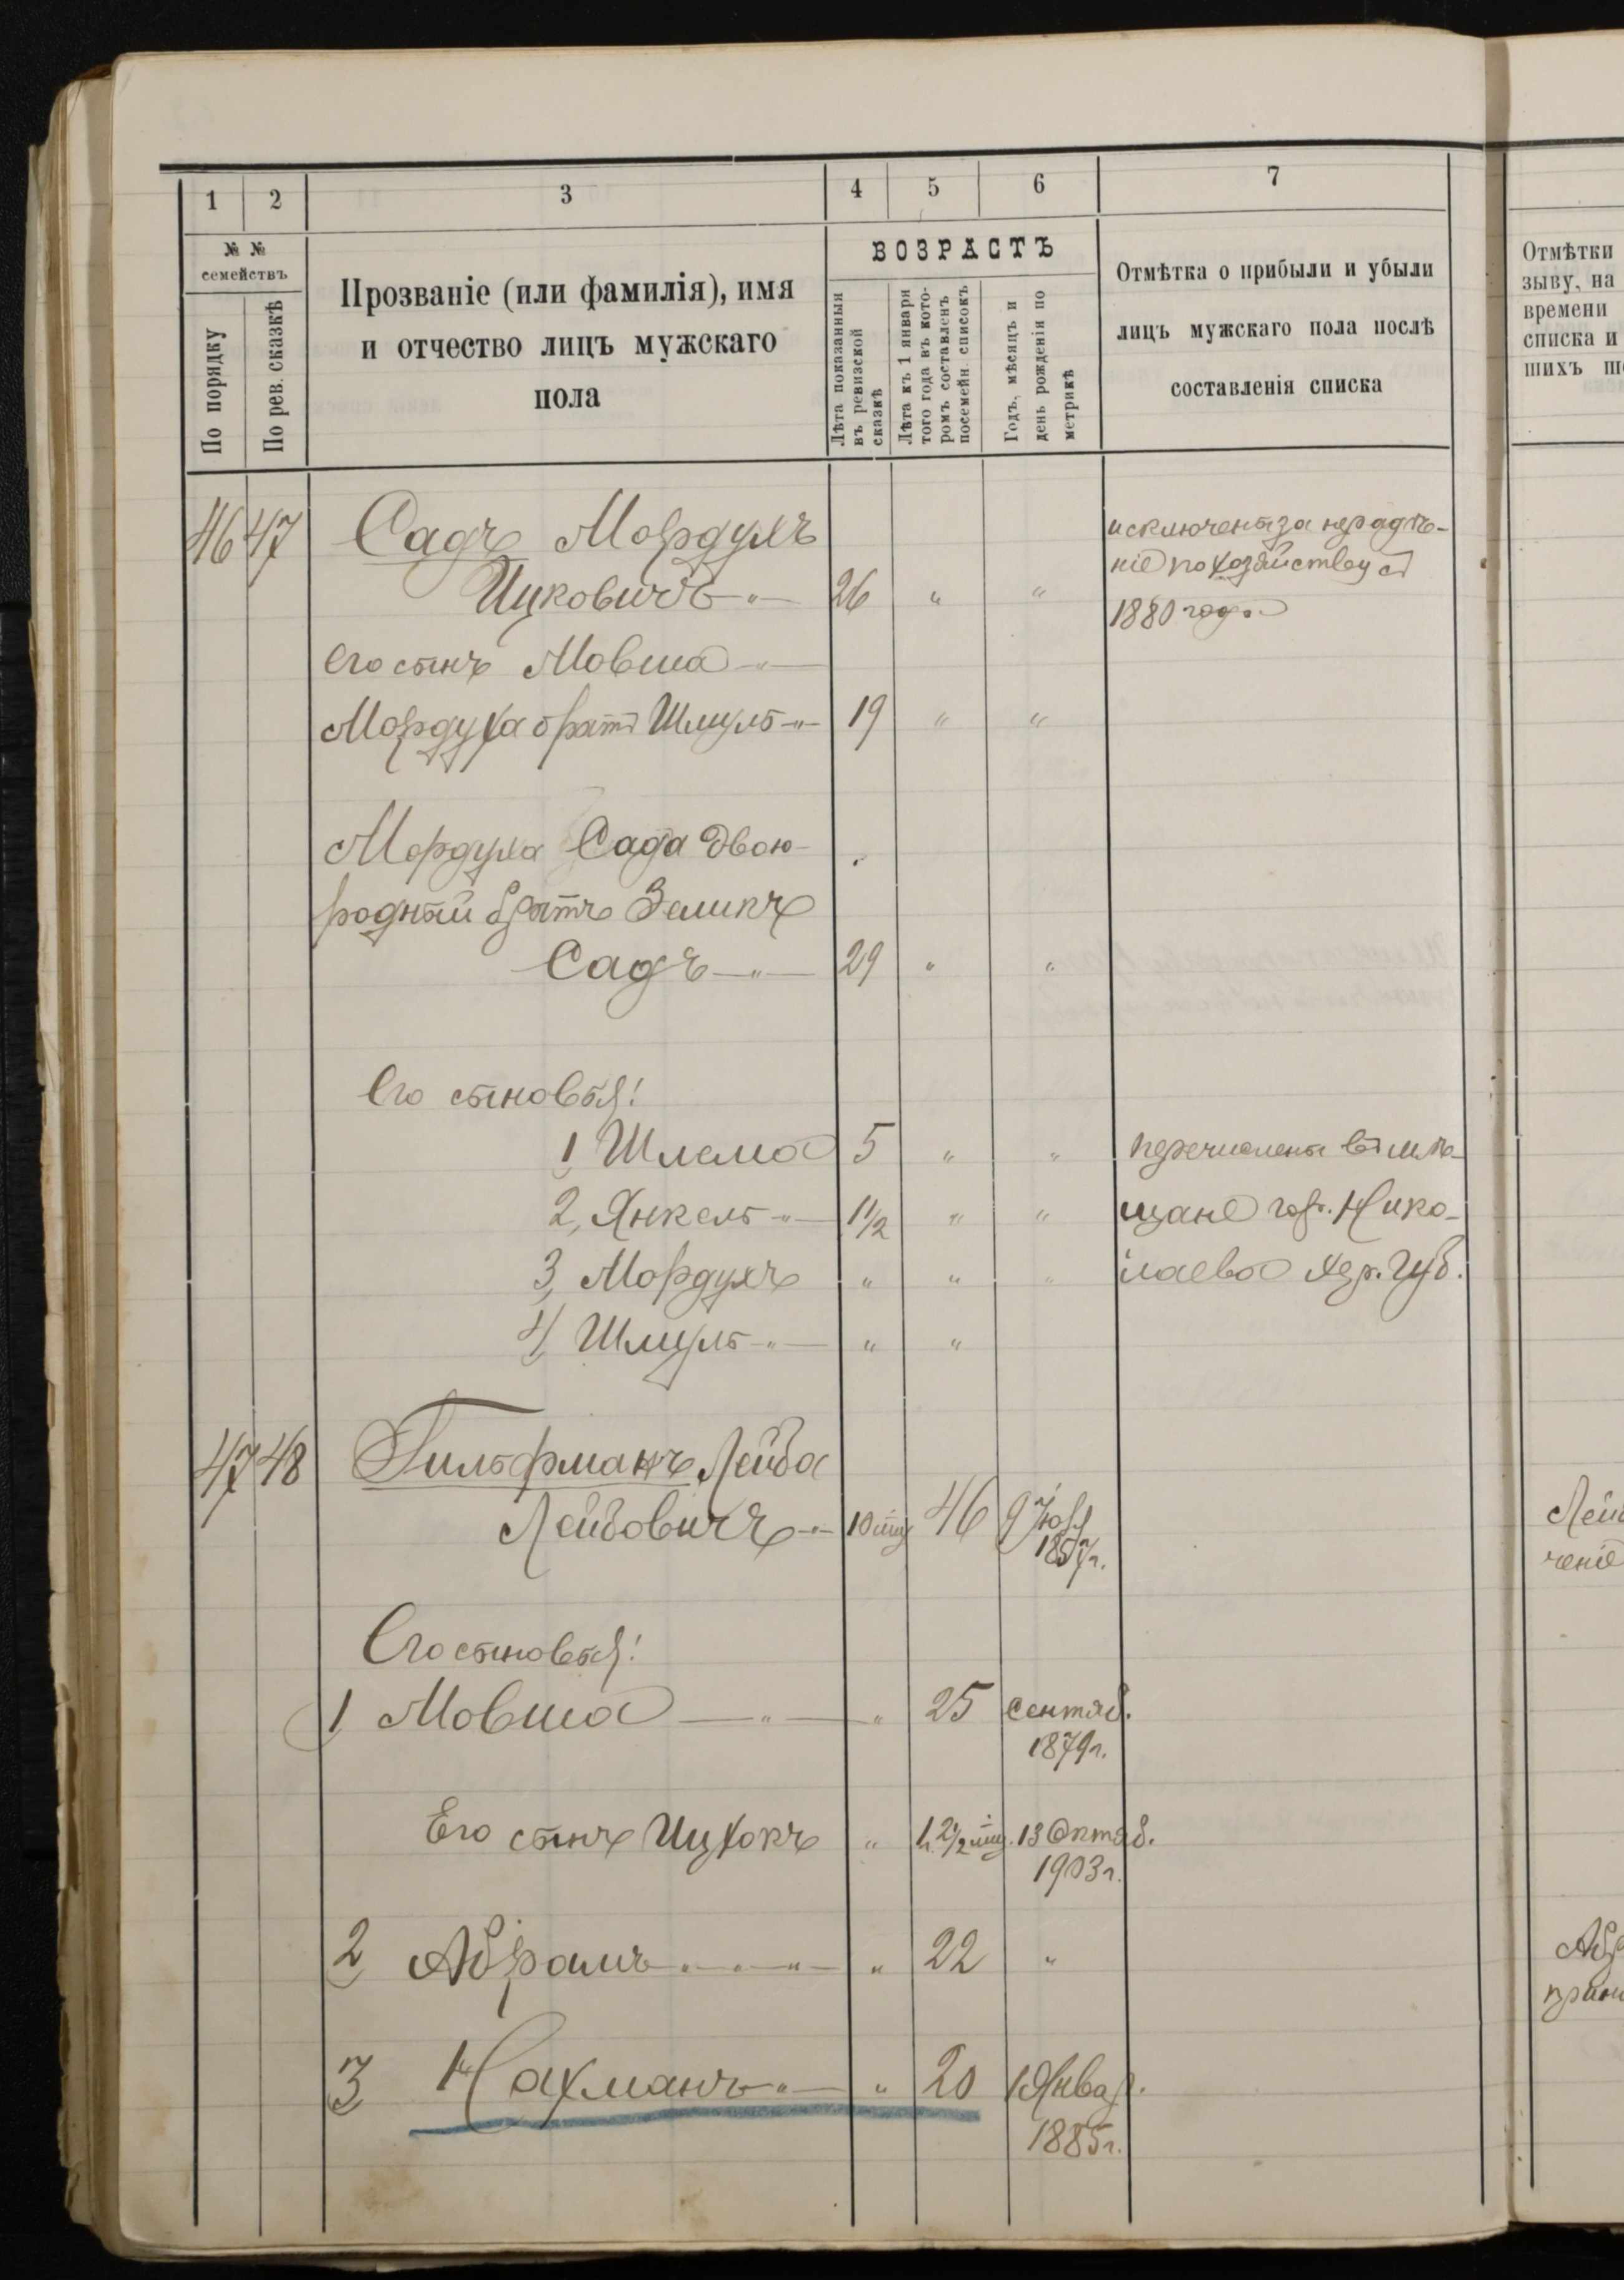 1 2 3 4 5 6 7
№ №
семействъ
По порядку
По рев. сказкѣ
Прозваніе (или фамилія), имя
и отчество лицъ мужскаго
пола
ВОЗРАСТЪ
Лѣта показанныя
въ ревизской
сказкѣ
Лѣта къ 1 января
того года въ кото-
ромъ составленъ
посемейн. списокъ
Годъ, мѣсяцъ и
день рожденія по
метрикѣ
Отмѣтка о прибыли и убыли
лицъ мужскаго пола послѣ
составленія списка
46 47 Садъ Мордухъ
Ицковичъ -"- 26 " "
исключенъ за нерадѣ-
ніе по хозяйству съ
1880 года
Его сынъ Мовша -"-
Мордуха братъ Шмуль -"- 19 " "
Мордуха Сада двою-
родный братъ Зеликъ
Садъ -"- 29 " "
Его сыновья:
1, Шлема 5 " "
2, Янкель -"- 1 1/2 " "
3, Мордухъ " " "
4, Шмуль -"- " "
перечислены въ мѣ-
щане гор. Нико-
лаева Хер. губ.
47 48 Гильфманъ Лейба
Лейбовичъ -"- 10 мѣц 46 9
1857 г.
Его сыновья:
1, Мовша -"- " 25 Сентяб.
1879 г.
Его сынъ Ицхокъ " 1 г. 2 1/2 мѣц. 13 Октяб.
1903 г.
2, Абрамъ -"- " 22 "
3, Нахманъ -"- " 20 1 Январ.
1885 г.
Отмѣтки
зыву, на
времени
списка и
шихъ
Лей
ченіе
Абр